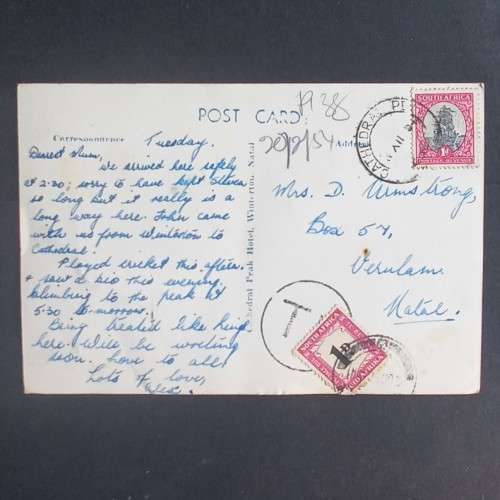 H 38
POST CARD
20/2/54
Correspondence
Tuesday.
Dearest Mum,
We arrived here safely
at 2.30; sorry to have kept
so long but it really is a
long way here. John came
with us from Winterton to
Cathedral.
Played cricket this aftern.
& saw a bio this evening.
Climbing to the peak at
5.30 to-morrow.
Being treated like kings
here. Will be writing
soon. Love to all,
Lots of love,
Cathedral Peak Hotel, Winterton, Natal
Mrs. D. Armstrong,
Box 57,
Verulam.
Natal.
SOUTH AFRICA
1D
POSTAGE REVENUE
CATHEDRAL PEAK
T
SOUTH AFRICA
1D
SUID-AFRIKA